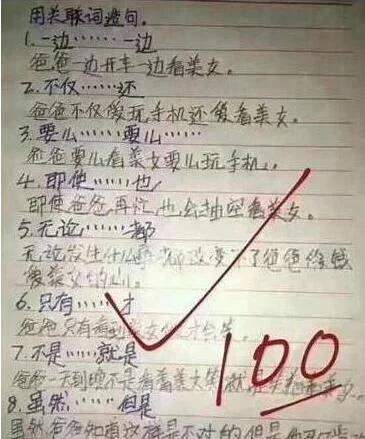 用关联词造句。
1.一边……一边
爸爸一边开车一边看美女。
2.不仅……还
爸爸不仅爱玩手机还爱看美女。
3.要么……要么……
爸爸要么看美女要么玩手机。
4.即使……也
即使爸爸再忙,也会抽空看美女。
5.无论……都
无论发生什么 都改变不了爸爸
爱美女的心。
6.只有……才
爸爸只有看到美女 才会笑。
7.不是……就是
爸爸一天到晚不是看着美女笑就
8.虽然……但是
虽然爸爸知道这样是不对的但是
100